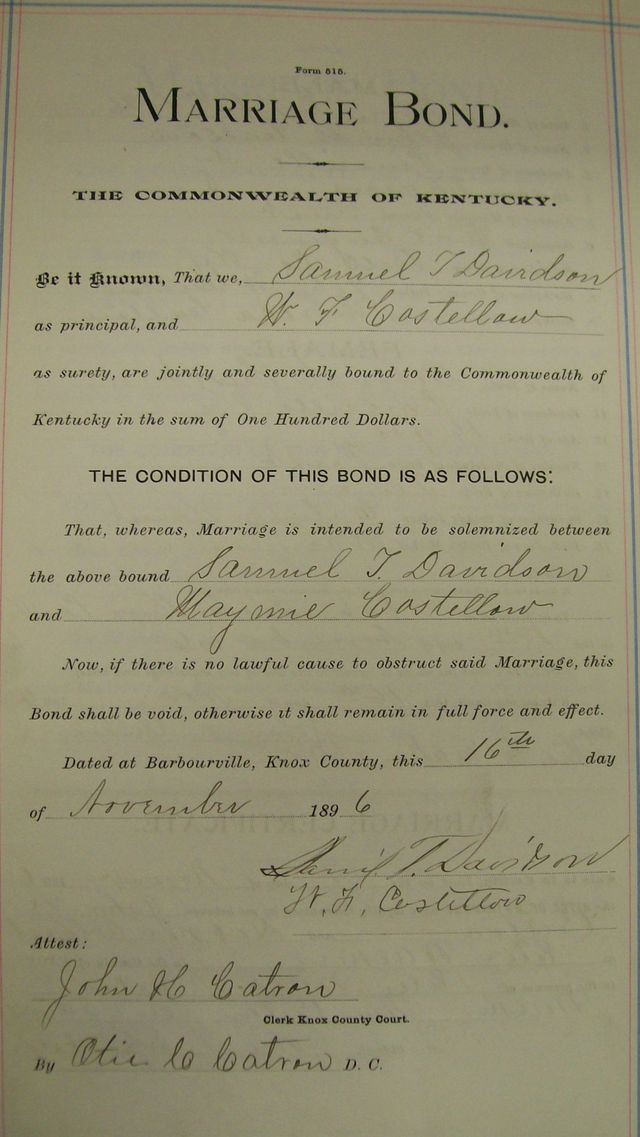 Form 515.
MARRIAGE BOND.
THE COMMONWEALTH OF KENTUCKY.
Be it Known, That we, Samuel T Davidson
as principal, and W. F Costellow
as surety, are jointly and severally bound to the Commonwealth of
Kentucky in the sum of One Hundred Dollars.
THE CONDITION OF THIS BOND IS AS FOLLOWS:
That, whereas, Marriage is intended to be solemnized between
the above bound Samuel T. Davidson
and Maymie Costellow
Now, if there is no lawful cause to obstruct said Marriage, this
Bond shall be void, otherwise it shall remain in full force and effect.
Dated at Barbourville, Knox County, this 16th day
of November 1896
T. Davidson
W. F. Costellow
Attest:
John H Catron
Clerk Knox County Court.
By Otie C Catron D. C.